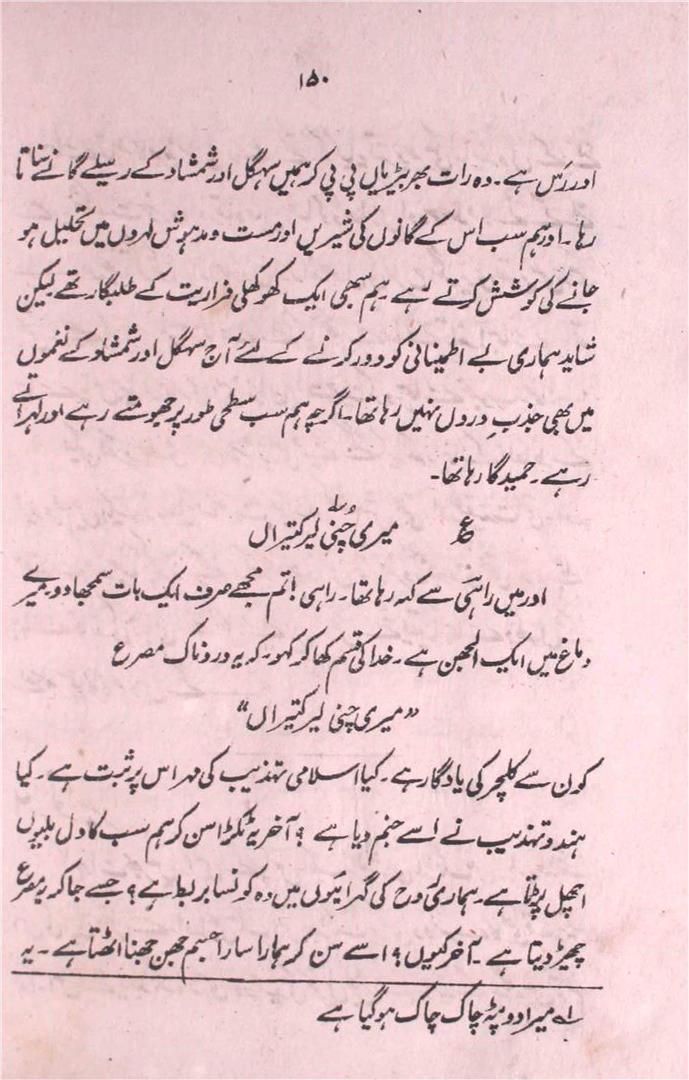 ۱۵۰
اور رَس ہے۔ وہ رات بھر بیڑیاں پی پی کر ہمیں سہگل اور شمشاد کے رسیلے گانے سناتا
رہا۔ اور ہم سب اس کے گانوں کی شیریں اور مست و مدہوش لہروں میں تحلیل ہو
جانے کی کوشش کرتے رہے ہم سبھی ایک کھوکھلی فراریت کے طلبگار تھے لیکن
شاید ہماری بے اطمینانی کو دور کرنے کے لئے آج سہگل اور شمشاد کے نغموں
میں بھی جذبِ دروں نہیں رہا تھا۔ اگرچہ ہم سب سطحی طور پر جھومتے رہے اور لہراتے
رہے۔ حمید گا رہا تھا۔
ع میری چُنی لیر کتیراں ۱ے
اور میں راہیؔ سے کہہ رہا تھا۔ راہی! تم مجھے صرف ایک بات سمجھا دو میرے
دماغ میں ایک الجھن ہے۔ خدا کی قسم کھا کر کہو۔ کہ یہ دردناک مصرع
"میری چنی لیر کتیراں"
کون سے کلچر کی یادگار ہے۔ کیا اسلامی تہذیب کی مہر اس پر ثبت ہے۔ کیا
ہندو تہذیب نے اسے جنم دیا ہے؟ آخر یہ ٹکڑا سن کر ہم سب کا دل بلیوں
اچھل پڑتا ہے۔ ہماری روح کی گہرائیوں میں وہ کونسا بربط ہے؟ جسے جا کر یہ مصرع
چھیڑ دیتا ہے۔ آخر کیوں؟ اسے سن کر ہمارا سارا جسم جھن جھنا اٹھتا ہے۔ یہ
۱ے میرا دوپٹہ چاک چاک ہو گیا ہے